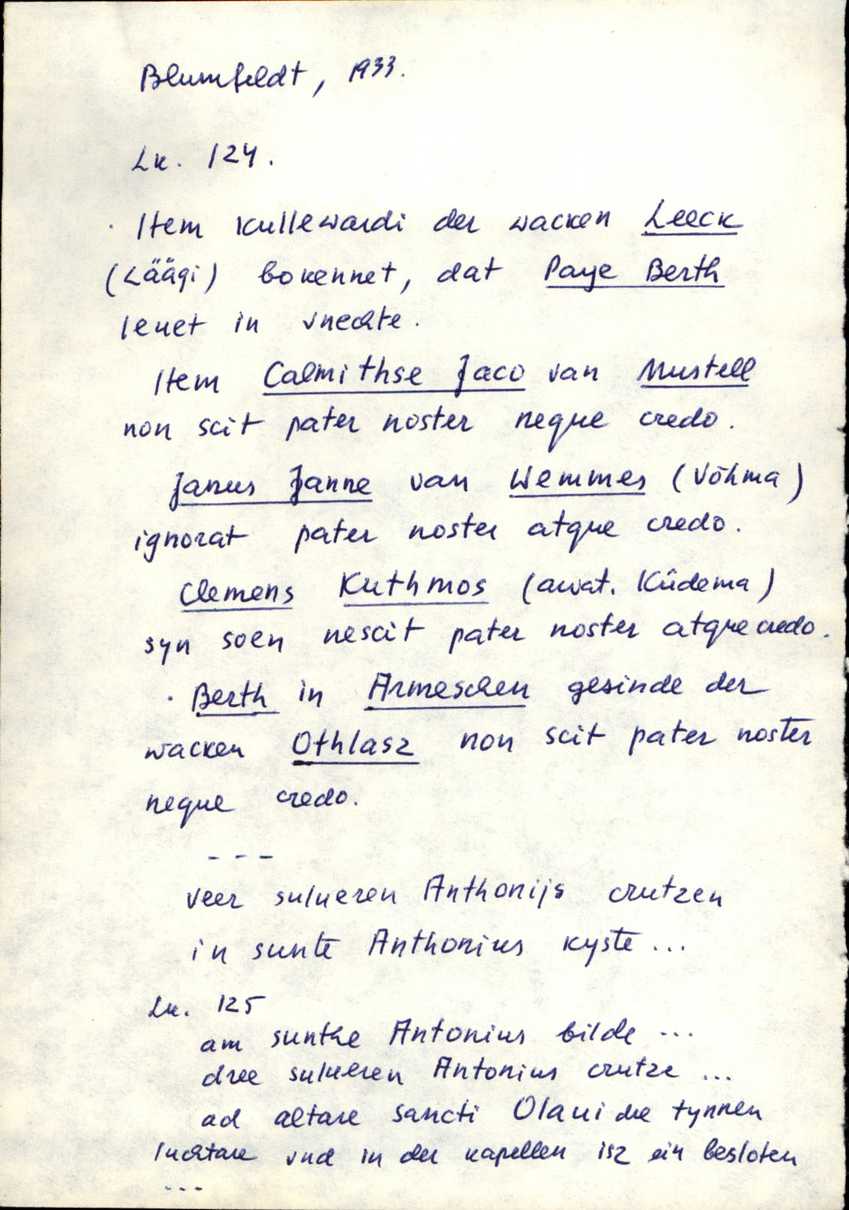 Blumfeldt, 1933.
Lk. 124.
· Item kullewardi der wacken Leeck
(Läägi) bokennet, dat Paye Berth
leuet in vnechte.
Item Calmithse Jaco van Mustell
non scit pater noster neque credo.
Janus Janne van Wemmes (Võhma)
ignorat pater noster atque credo.
Clemens Kuthmos (arvat. Küdema)
syn soen nescit pater noster atque credo.
· Berth in Armeschen gesinde der
wacken Othlasz non scit pater noster
neque credo.
---
veer sulueren Anthonijs crutzen
in sunte Anthonius kyste ...
Lk. 125
am sunthe Antonius bilde ...
dree sulueren Antonius crutze ...
ad altare sancti Olaui die tynnen
luchtare vnd in der kapellen isz ein besloten
---